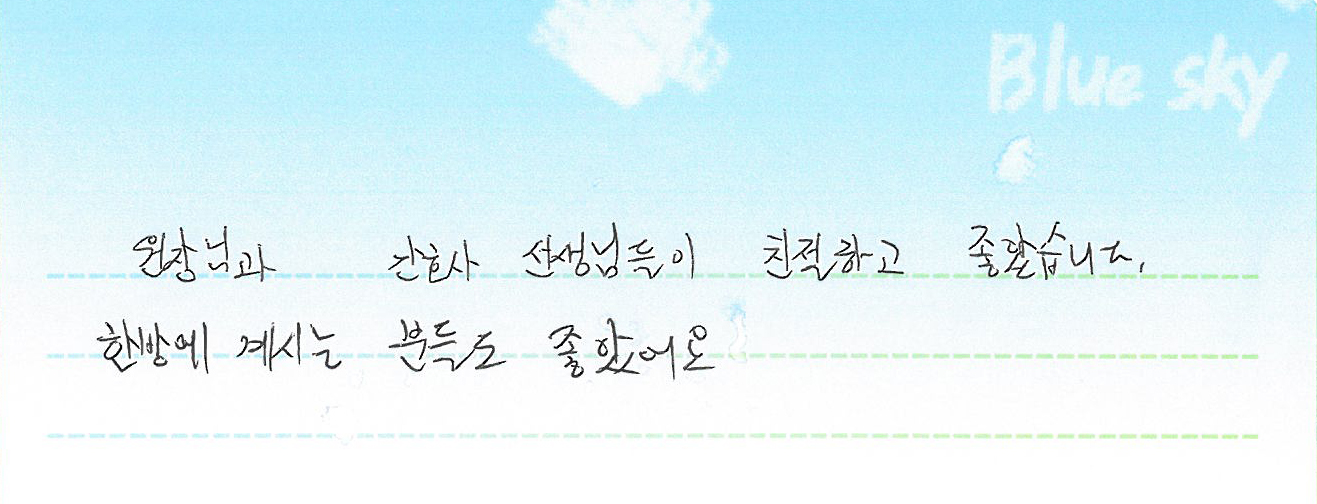 Blue sky
원장님과 간호사 선생님들이 친절하고 좋았습니다.
한방에 계시는 분들도 좋았어요